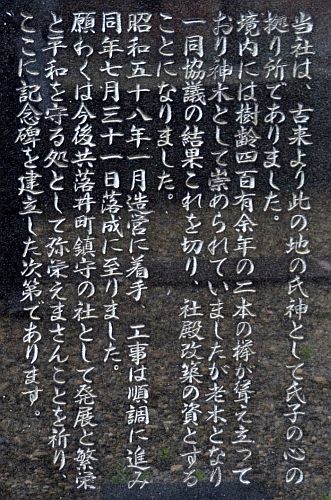 当社は、古来より此の地の氏神として氏子の心の
拠り所でありました。
境内には樹齢四百有余年の二本の欅が聳え立って
おり神木として崇められていましたが老木となり
一同協議の結果これを切り、社殿改築の資とする
ことになりました。
昭和五十八年一月造営に着手、工事は順調に進み
同年七月三十一日落成に至りました。
願わくは今後共落井町鎮守の社として発展と繁栄
と平和を守る処として弥栄えまさんことを祈り、
ここに記念碑を建立した次第であります。